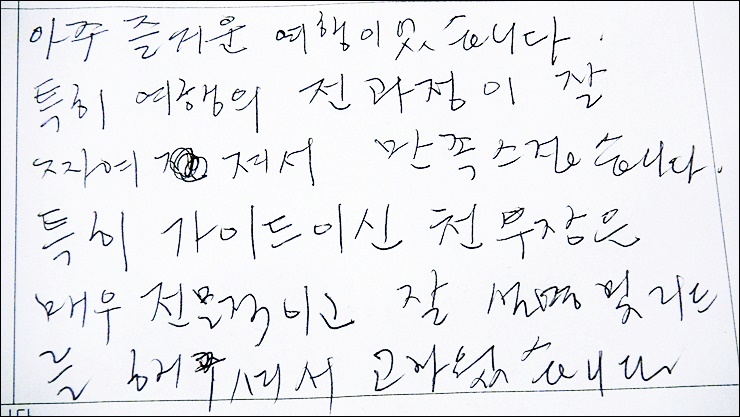 아주 즐거운 여행이었습니다.
특히 여행의 전과정이 잘
짜여 져서 만족스러웠습니다.
특히 가이드이신 천부장은
매우 전문적이고 잘 설명 및 리드
를 해주셔서 고마웠습니다